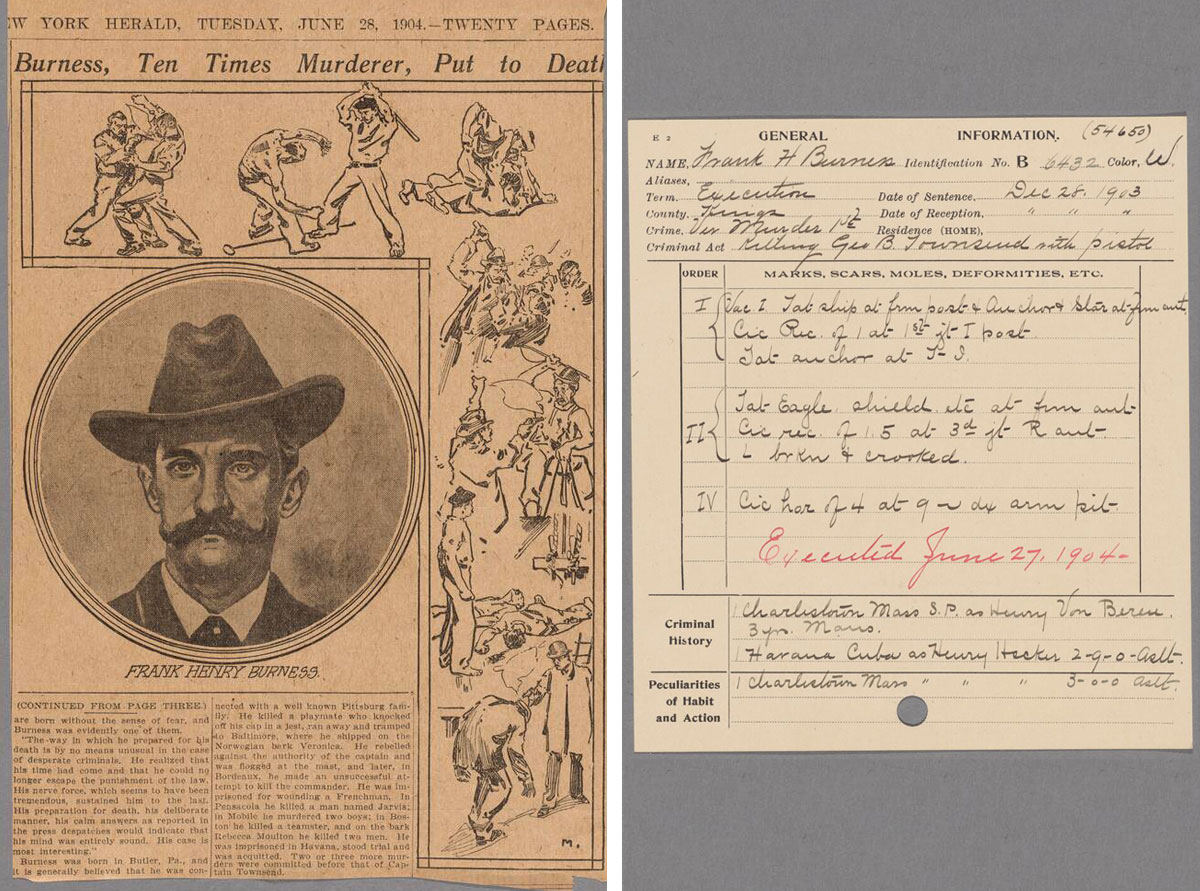 EW YORK HERALD, TUESDAY, JUNE 28, 1904.—TWENTY PAGES.
Burness, Ten Times Murderer, Put to Death
FRANK HENRY BURNESS.
M.
(CONTINUED FROM PAGE THREE.)
are born without the sense of fear, and
Burness was evidently one of them.
"The way in which he prepared for his
death is by no means unusual in the case
of desperate criminals. He realized that
his time had come and that he could no
longer escape the punishment of the law.
His nerve force, which seems to have been
tremendous, sustained him to the last.
His preparation for death, his deliberate
manner, his calm answers as reported in
the press despatches would indicate that
his mind was entirely sound. His case is
most interesting."
Burness was born in Butler, Pa., and
it is generally believed that he was con-
nected with a well known Pittsburg fam-
ily. He killed a playmate who knocked
off his cap in a jest, ran away and tramped
to Baltimore, where he shipped on the
Norwegian bark Veronica. He rebelled
against the authority of the captain and
was flogged at the mast, and later, in
Bordeaux, he made an unsuccessful at-
tempt to kill the commander. He was im-
prisoned for wounding a Frenchman. In
Pensacola he killed a man named Jarvis;
in Mobile he murdered two boys; in Bos-
ton he killed a teamster, and on the bark
Rebecca Moulton he killed two men. He
was imprisoned in Havana, stood trial and
was acquitted. Two or three more mur-
ders were committed before that of Cap-
tain Townsend.
E 2 GENERAL INFORMATION. (54650)
NAME, Frank H Burness Identification No. B 6432 Color, W.
Aliases,
Term. Execution Date of Sentence, Dec 28. 1903
County. Kings Date of Reception, " " "
Crime. Murder 1st Residence (HOME),
Criminal Act Killing Geo B. Townsend with pistol
ORDER MARKS, SCARS, MOLES, DEFORMITIES, ETC.
I Vac I. Tat ship at frm post & Anchor & Star at frm ant
Cic Rec. of 1 at 1st jt I post.
Tat anchor at
II Tat Eagle shield etc at frm ant
Cic rec. of 1.5 at 3d jt R ant
brkn & crooked.
IV Cic hor of 4 at 9 dx arm pit
Executed June 27, 1904-
Criminal History
1 Charlestown Mass S.P. as Henry Von Beren.
3 yrs. Mans.
1 Havana Cuba as Henry Hecker 2-9-0-Aslt.
Peculiarities of Habit and Action
1 Charlestown Mass " " " 3-0-0 Aslt.